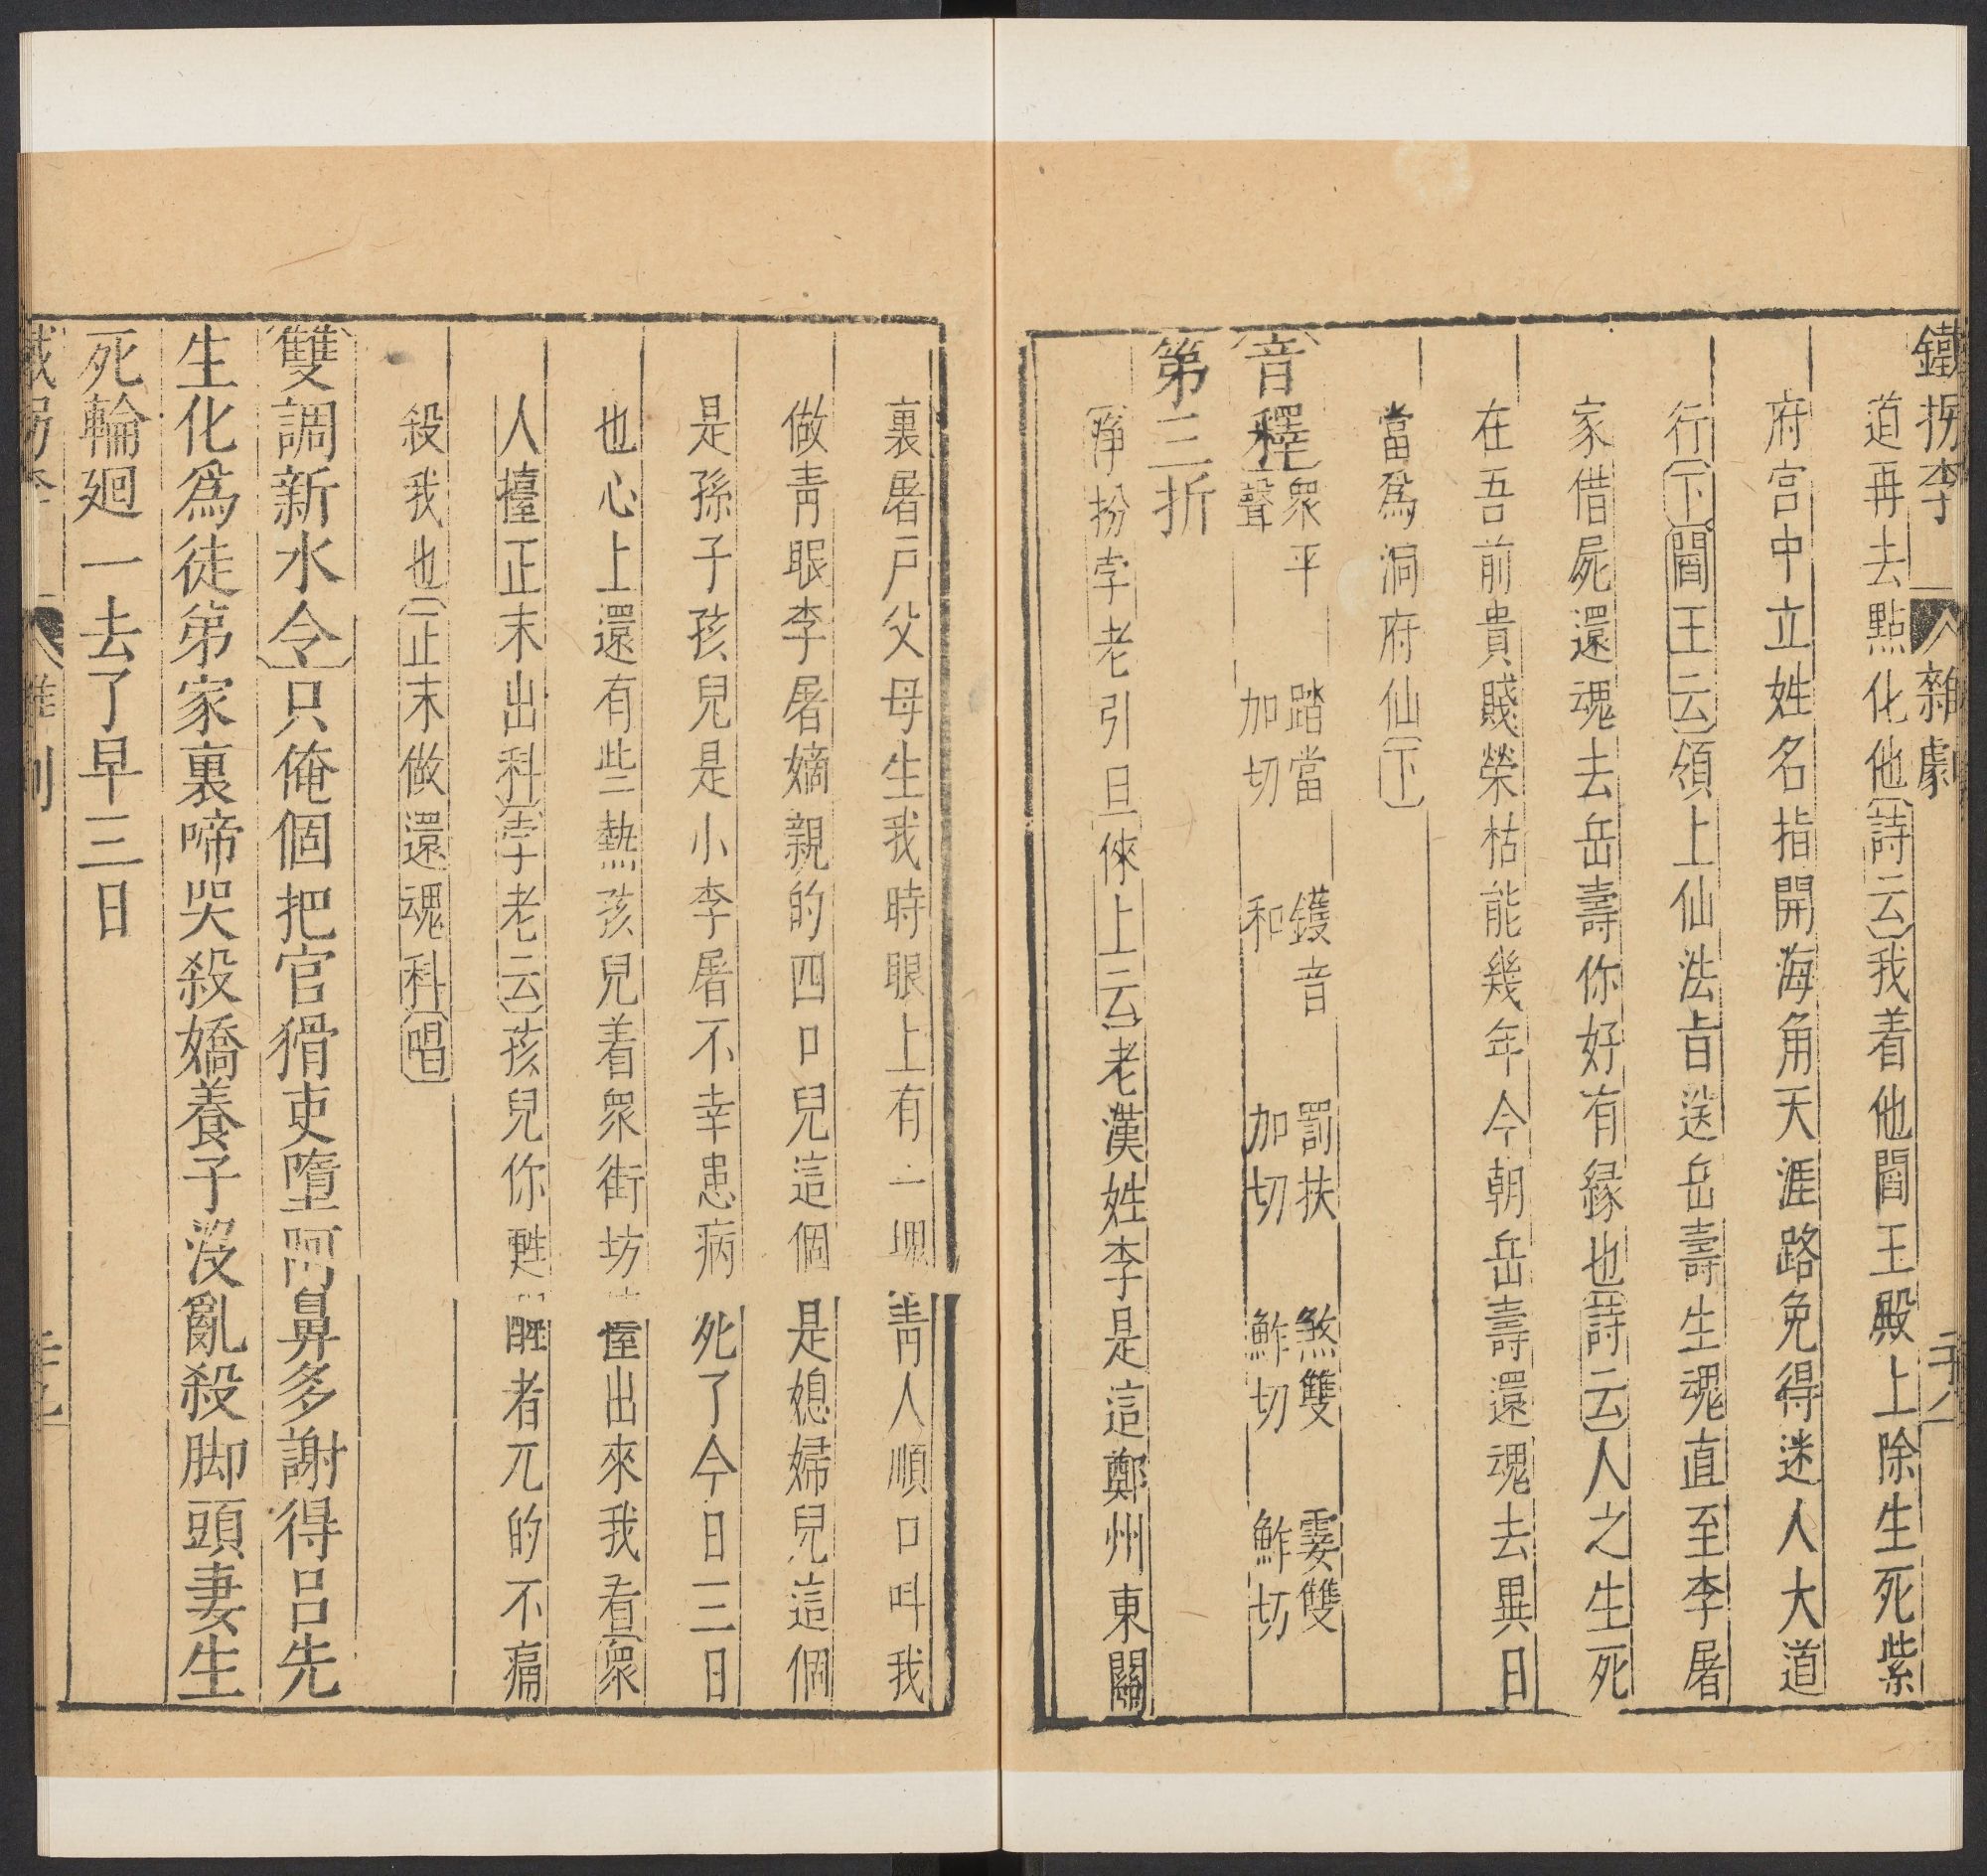 鐵拐李 雜劇
道再去點化他〔詩云〕我着他閻王殿上除生死紫
府宮中立姓名指開海角天涯路免得迷人大道
行〔下〕〔閻王云〕領上仙法旨送岳壽生魂直至李屠
家借屍還魂去岳壽你好有緣也〔詩云〕人之生死
在吾前貴賤榮枯能幾年今朝岳壽還魂去異日
當爲洞府仙〔下〕
〔音釋〕衆平聲 踏當加切 鑊音和 罰扶加切 煞雙鮓切 霎雙鮓切
第三折
〔淨扮孛老引旦倈上云〕老漢姓李是這鄭州東關
裏屠戶父母生我時眼上有一塊青人順口叫我
做青眼李屠嫡親的四口兒這個是媳婦兒這個
是孫子孩兒是小李屠不幸患病死了今日三日
也心上還有些熱孩兒着衆街坊擡出來我看〔衆
人擡正末出科〕〔孛老云〕孩兒你甦醒者兀的不痛
殺我也〔正末做還魂科〕〔唱〕
〔雙調新水令〕只俺個把官猾吏墮阿鼻多謝得呂先
生化爲徒弟家裏啼哭殺嬌養子沒亂殺脚頭妻生
死輪廻一去了早三日